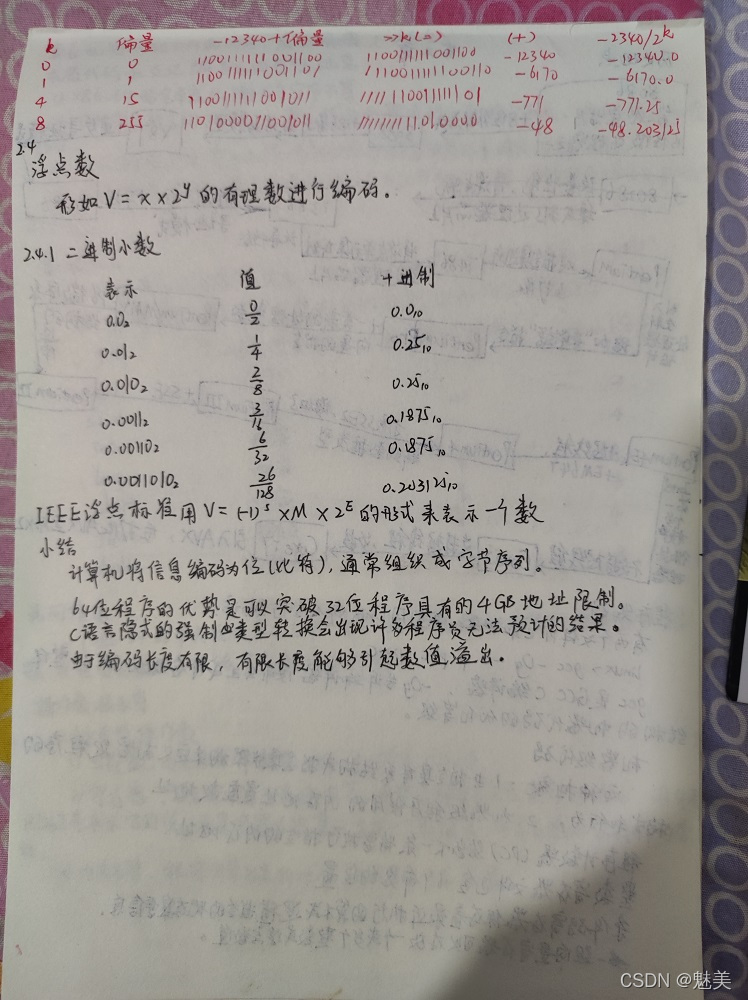 k 偏量 -12340+偏量 >>k(二) (十) -2340/2^k
0 0 1100111111001100 1100111111001100 -12340 -12340.0
1 1 1100111111001101 1110011111100110 -6170 -6170.0
4 15 -771 -771.25
8 255 1101000011001011 1111111111010000 -48 -48.203125
2.4
浮点数
形如V=x×2^y的有理数进行编码。
2.4.1 二进制小数
表示 值 十进制
0.0₂ 0/2 0.0₁₀
0.01₂ 1/4 0.25₁₀
0.010₂ 2/8 0.25₁₀
0.0011₂ 3/16 0.1875₁₀
0.00110₂ 6/32 0.1875₁₀
0.0011010₂ 26/128 0.203125₁₀
IEEE浮点标准用V=(-1)^s×M×2^E的形式来表示一个数
小结
计算机将信息编码为位(比特),通常组织成字节序列。
64位程序的优势是可以突破32位程序具有的4GB地址限制。
C语言隐式的强制类型转换会出现许多程序员无法预计的结果。
由于编码长度有限,有限长度能够引起数值溢出。
CSDN @魅美